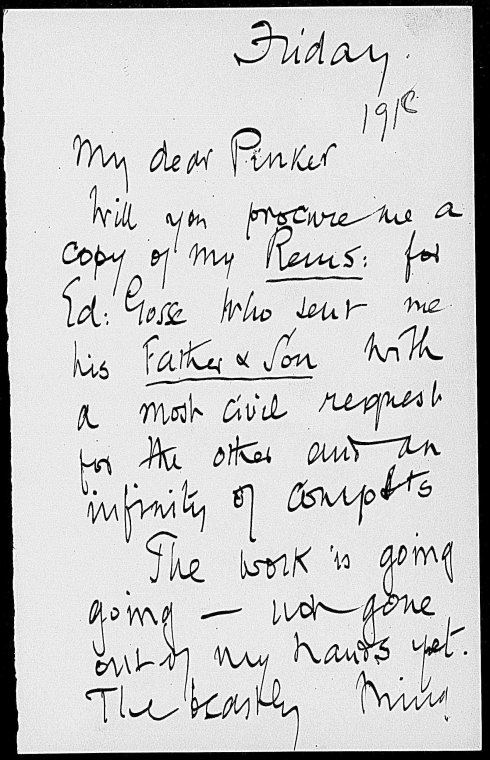 Friday.
191
My dear Pinker
Will you procure me a
copy of my Rems: for
Ed: Gosse who sent me
his Father & Son with
a most civil request
for the other and an
infinity of complts
The work is going
going — not gone
out of my hands yet.
The beastly thing